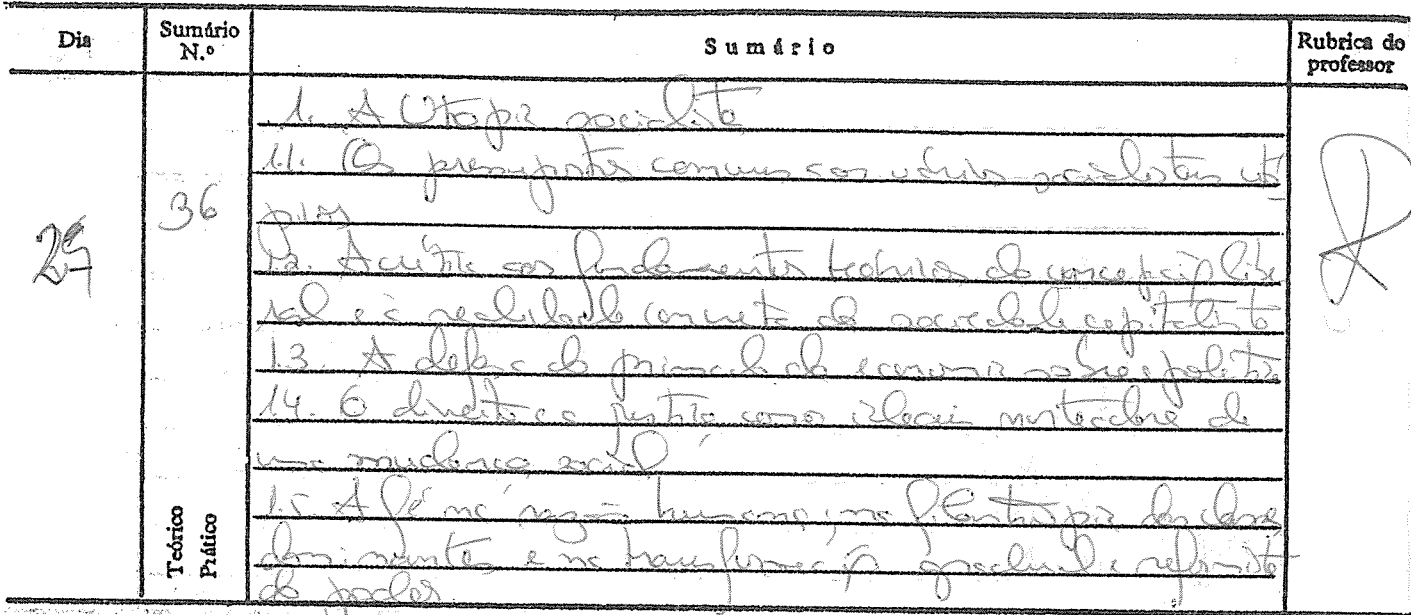 Dia
Sumário N.º
Sumário
Rubrica do professor
25
36
Teórico
Prático
1. A Utopia socialista
1.1. Os pressupostos comuns aos vários socialistas utó
picos
1.2. A crítica aos fundamentos teóricos da concepção libe
ral e à realidade concreta da sociedade capitalista
1.3. A defesa do primado da economia sobre a política
1.4. O direito e a justiça como ideais norteadores de
uma mudança social
1.5 A fé na razão humana, na filantropia das classes
dominantes e na transformação gradual e reformista
do poder